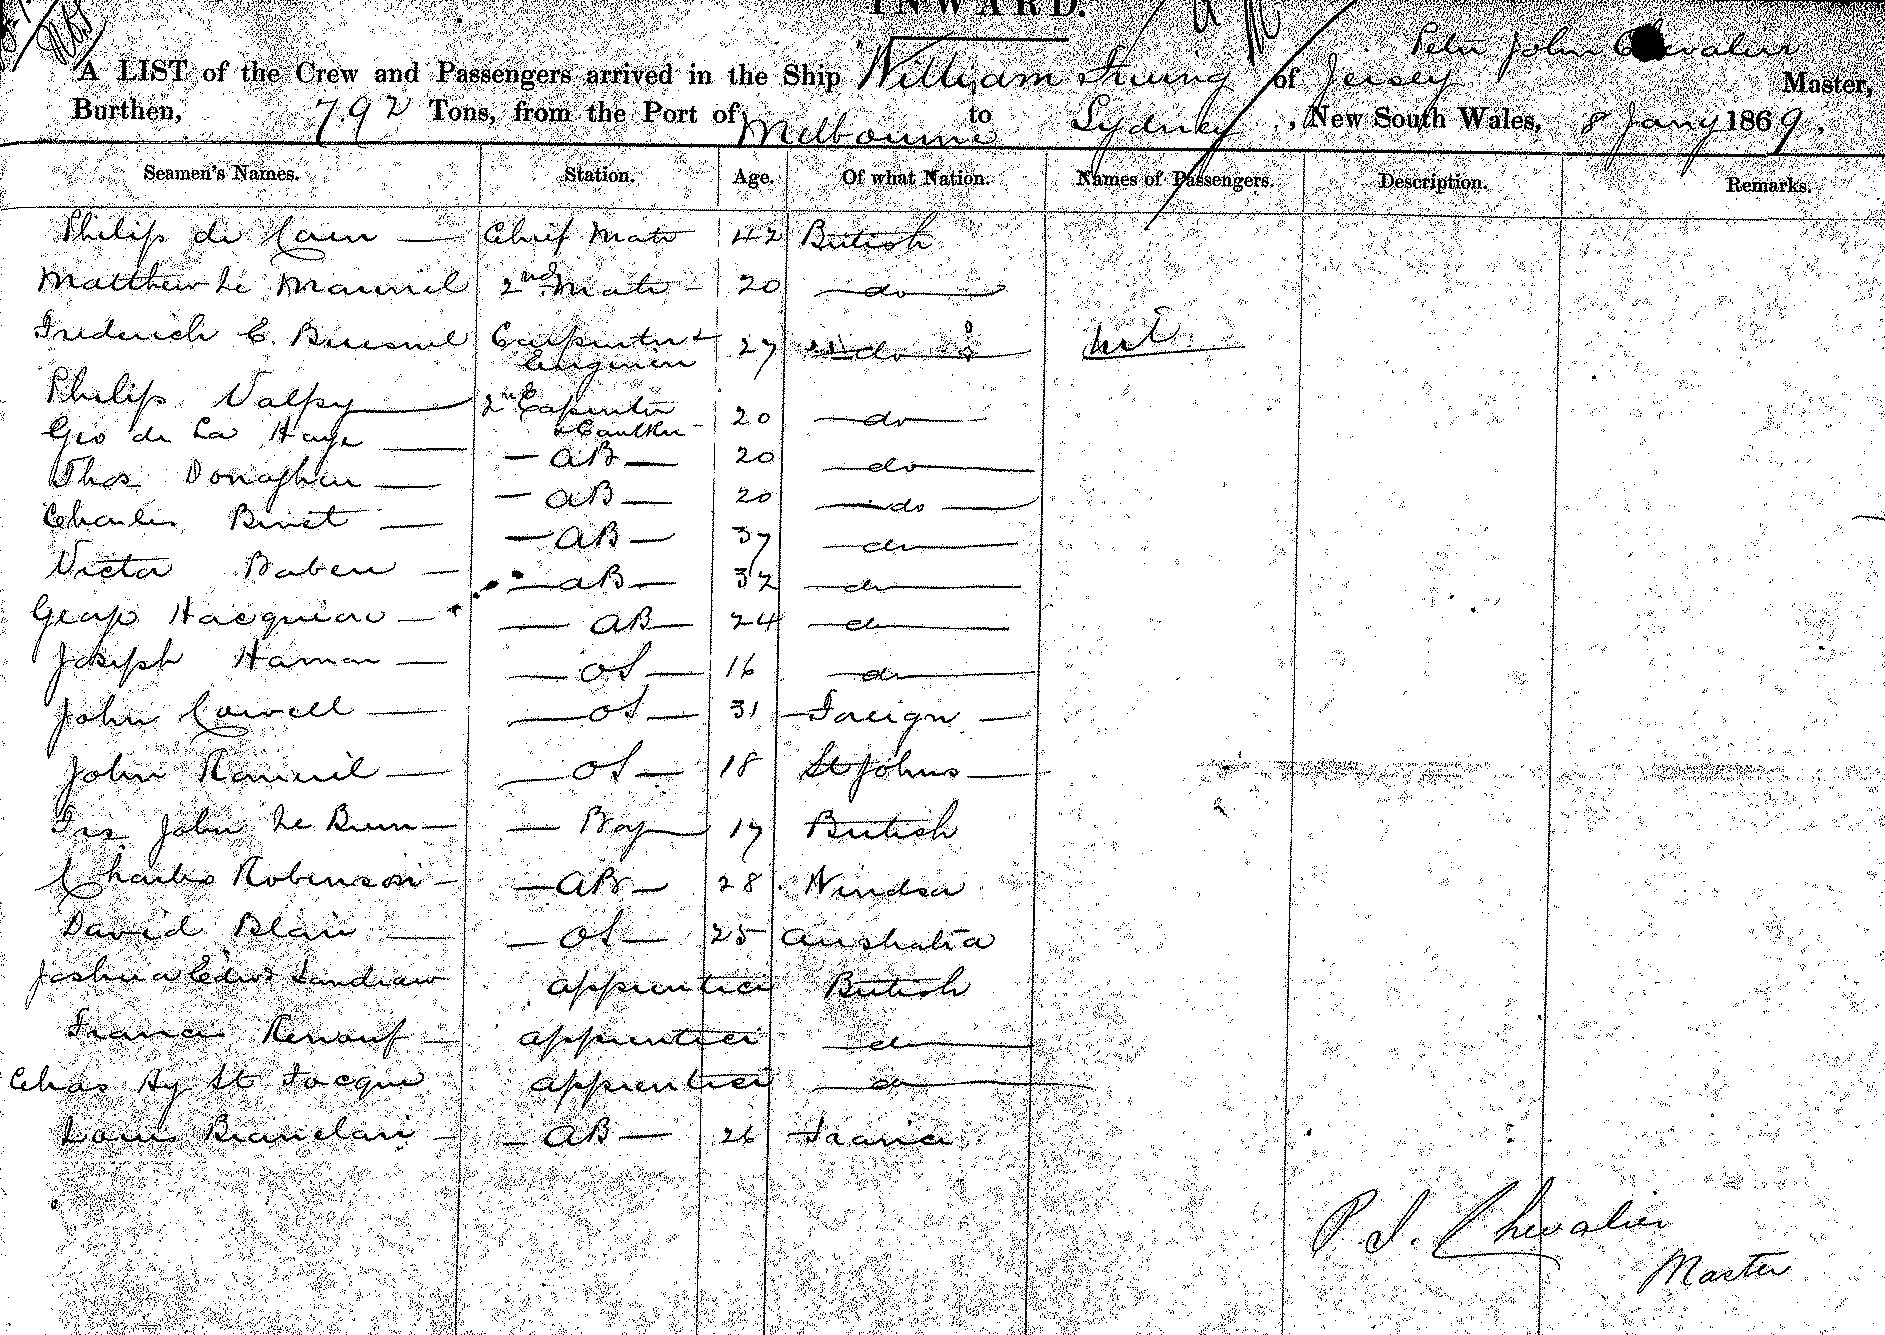 INWARD.
Peter John Chevalier
A LIST of the Crew and Passengers arrived in the Ship William Irving of Jersey Master,
Burthen, 792 Tons, from the Port of Melbourne to Sydney, New South Wales, 8 Jany 1869.
Seamen's Names. Station. Age. Of what Nation. Names of Passengers. Description. Remarks.
Philip de Caen Chief Mate 42 British
Matthew Le 2nd Mate 20 do
Frederick C. Carpenter & 27 do nil
Engineer
Philip Valpy 2nd Capenter 20 do
& Caulker
Geo de La Haye AB 20 do
Thos Donaghen AB 20 do
Charles Binet AB 37 do
Victor Baben AB 32 do
George AB 24 do
Joseph Hamon OS 16 do
John Cowell OS 31 Foreign
John OS 18 St Johns
John Le Brun Boy 17 British
Charles Robinson AB 28 Windsor
David Blair OS 25 Australia
Joshua Edwd apprentice British
Francis Renouf apprentice do
Chas Hy St Jacque apprentice do
Louis AB 26 France
P. J. Chevalier
Master